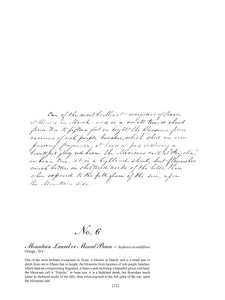 One of the most brilliant evergreens of Texas.
It blooms in March, and is a small tree or shrub
from two to fifteen feet in height; the blossoms form
racemes of rich purple bunches, which shed an over-
powering fragrance,
beautiful glossy red bean the Mexicans call it "Frijolia"
or bean tree, it is a highland shrub, but flourishes
much better in sheltered nooks of the hills, than
when exposed to the full glare of the sun, upon
the Mountain side
No. 6
Mountain Laurel or Mescal Bean — Sophora secundiflora
Ortega., D.C.
One of the most brilliant evergreens in Texas. It blooms in March, and is a small tree or
shrub from two to fifteen feet in height; the blossoms form racemes of rich purple bunches,
which shed an overpowering fragrance;
the Mexicans call it "Frijolia," or bean tree, it is a highland shrub, but flourishes much
better in sheltered nooks of the hills, than when exposed to the full glare of the sun, upon
the mountain side.
[12]